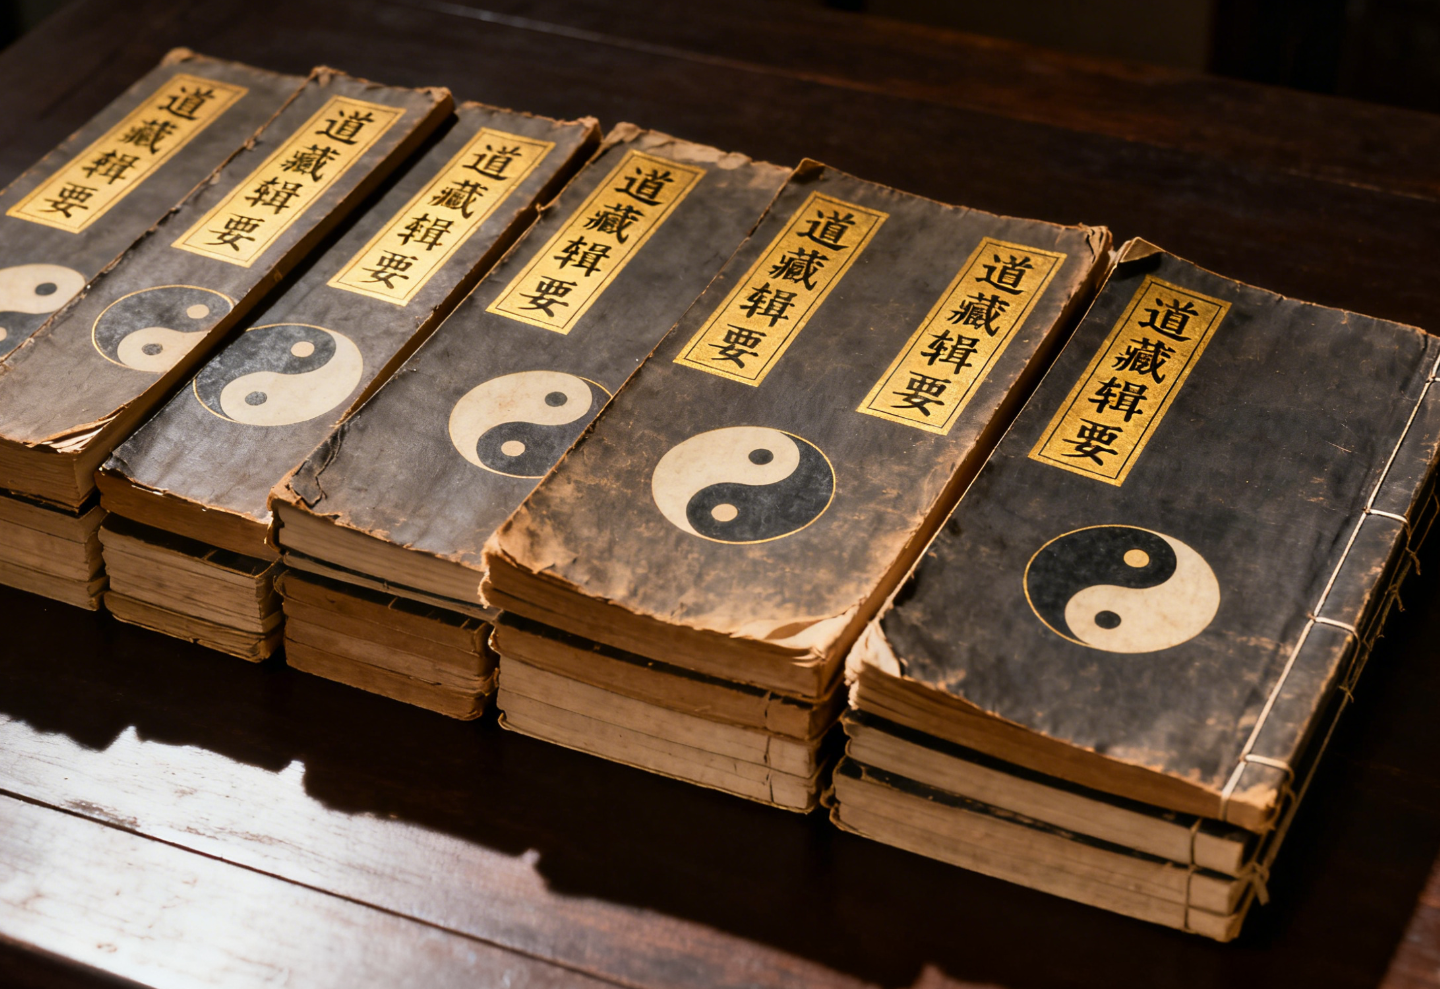 道藏辑要
道藏辑要
道藏辑要
道藏辑要
道藏辑要
道藏辑要
道藏辑要